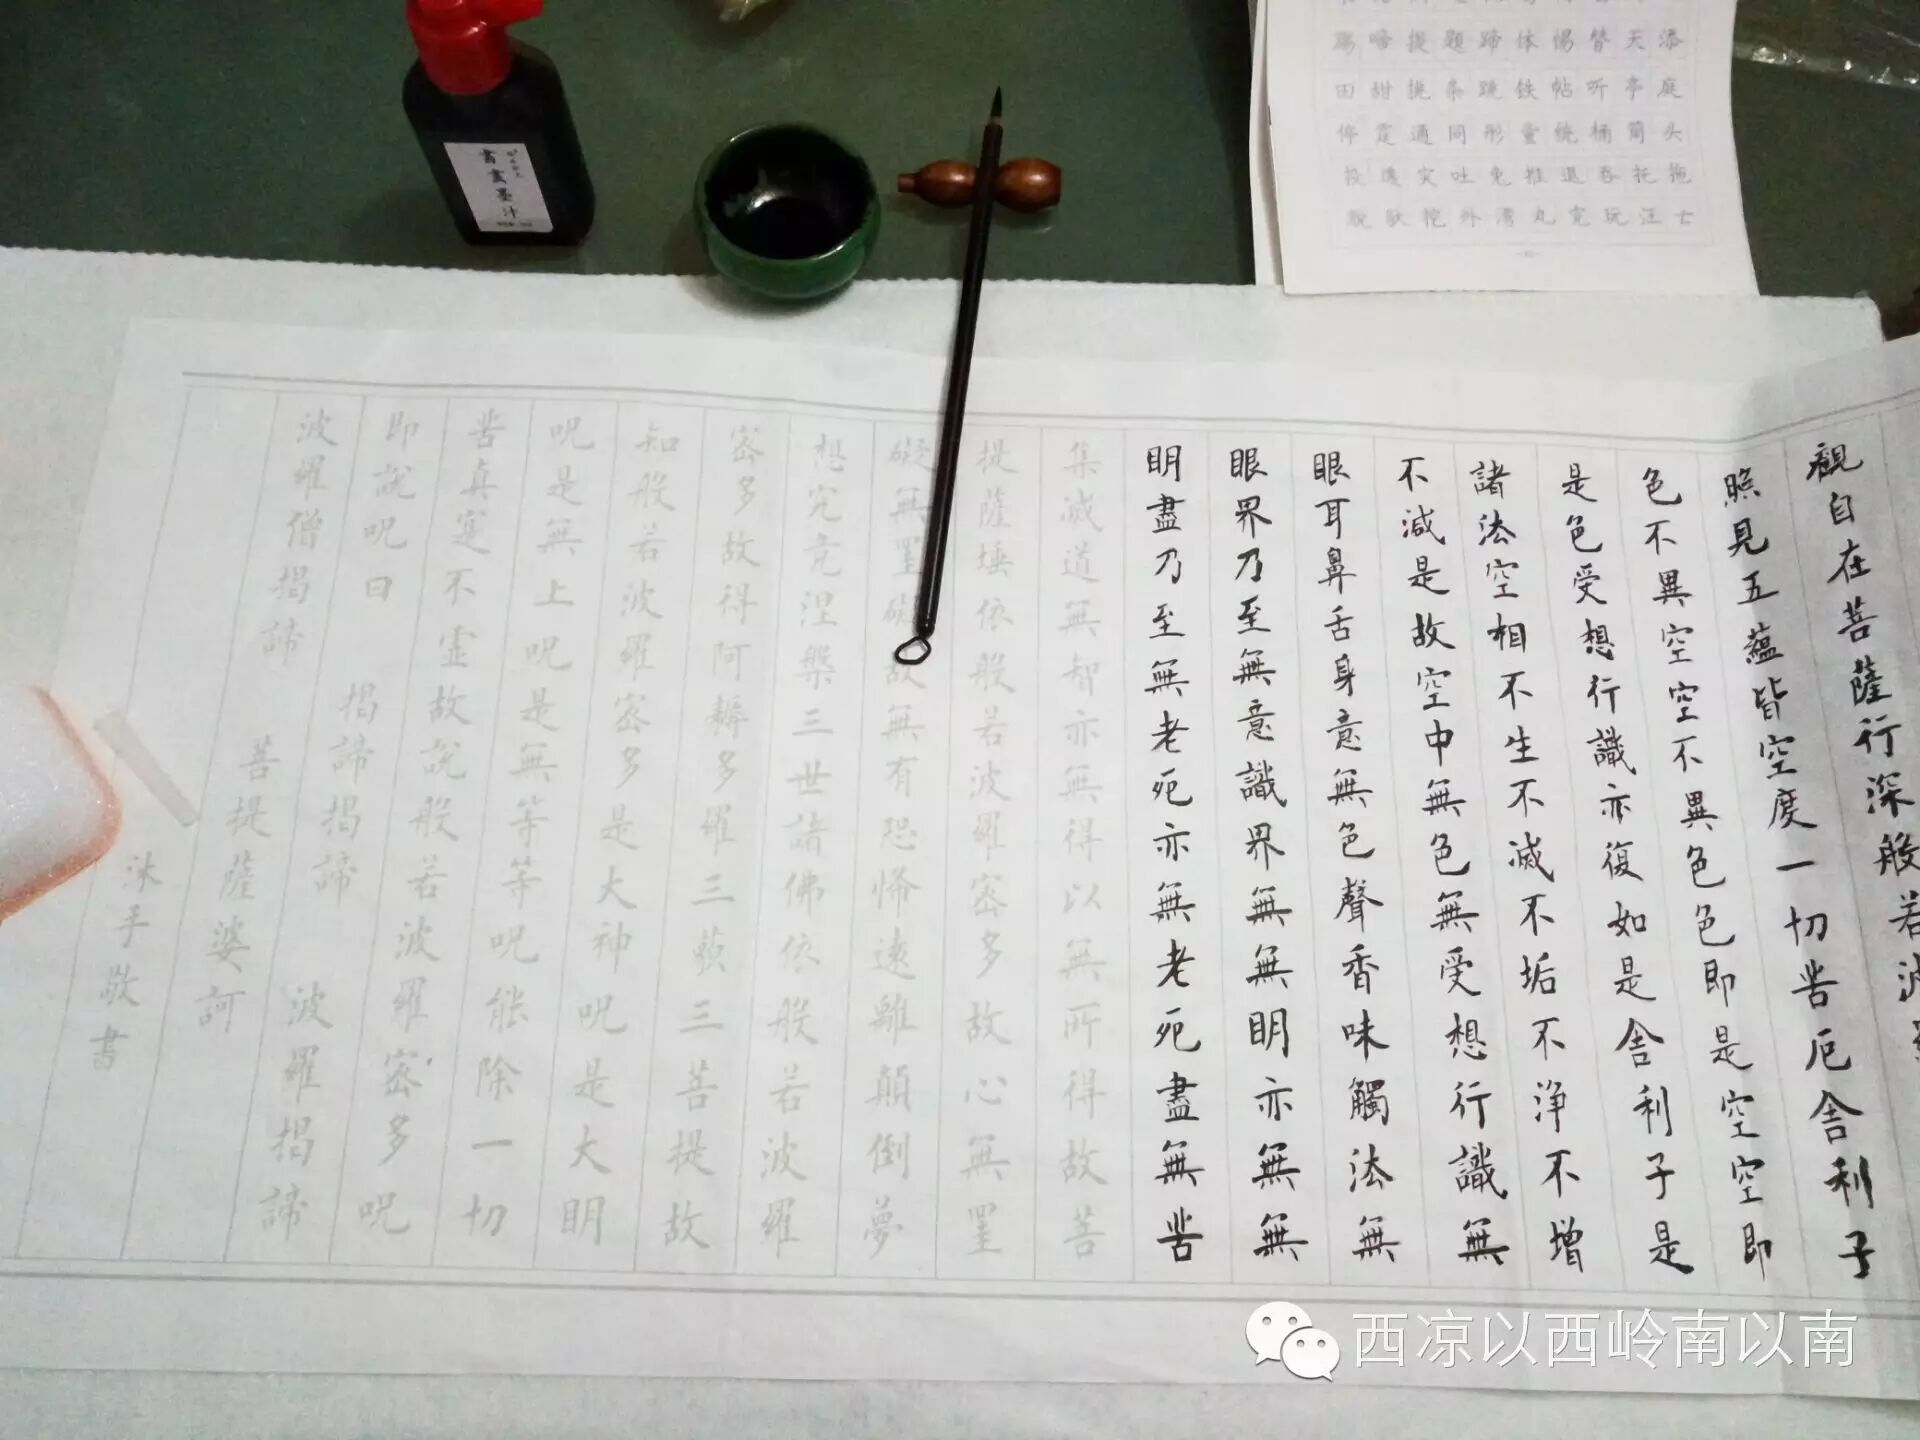 書畫墨汁
踢啼提题蹄体惕替天添
田甜挑条跳铁帖听亭庭
停霆通同彤童统桶筒头
投透突吐兔推退吞托拖
脱驮外湾丸完玩汪
觀自在菩薩行深般若波
照見五蘊皆空度一切苦厄舍利子
色不異空空不異色色即是空空即
是色受想行識亦復如是舍利子是
諸法空相不生不滅不垢不淨不增
不減是故空中無色無受想行識無
眼耳鼻舌身意無色聲香味觸法無
眼界乃至無意識界無無明亦無無
明盡乃至無老死亦無老死盡無苦
集滅道無智亦無得以無所得故菩
提薩埵依般若波羅密多故心無罣
礙無罣礙故無有恐怖遠離顛倒夢
想究竟涅槃三世諸佛依般若波羅
密多故得阿耨多羅三藐三菩提故
知般若波羅密多是大神呪是大明
呪是無上呪是無等等呪能除一切
苦真寔不虛故說般若波羅密多呪
即說呪曰 揭諦揭諦 波羅揭諦
波羅僧揭諦 菩提薩婆訶
沐手敬書
西凉以西岭南以南